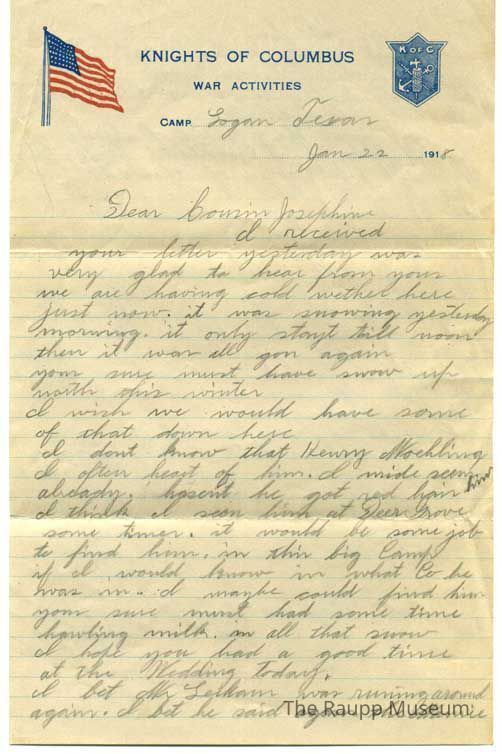 KNIGHTS OF COLUMBUS
K of C
WAR ACTIVITIES
CAMP Logan Texas
Jan 22 1918.
Dear Cousin Josephine
I received
your letter yesterday was
very glad to hear from you
we are having cold wether here
just now. it was snowing yesterday
morning. it only stayt till noon
then it was all gon again
your sure must have snow up
north this winter
I wish we would have some
of that down here
I dont know that Henry Mochling
I often heart of him. I mide seen him
already. hasent he got red hair
I think I seen him at Deer Grove
some times. it would be some job
to find him. in this big Camp
if I would know in what Co he
was in. I maybe could find him
you sure must had some time
hawling milk. in all that snow
I hope you had a good time
at the Wedding today.
I bet Mr was runing around
again. I bet he said
The Raupp Museum